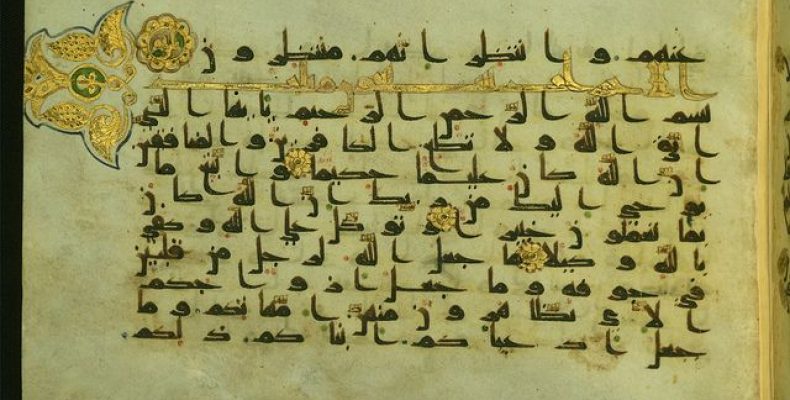 عنهم وانتظر انهم منتظرون
الاحزاب
بسم الله الرحمن الرحيم يايها النبي
اتق الله ولا تطع الكفرين والمنفقين
ان الله كان عليما حكيما واتبع ما
يوحى اليك من ربك ان الله كان
بما تعملون خبيرا وتوكل على الله وكفى
بالله وكيلا ما جعل الله لرجل من قلبين
في جوفه وما جعل ازوجكم
الاي تظهرون منهن امهتكم وما
جعل ادعياكم ابناكم ذلكم